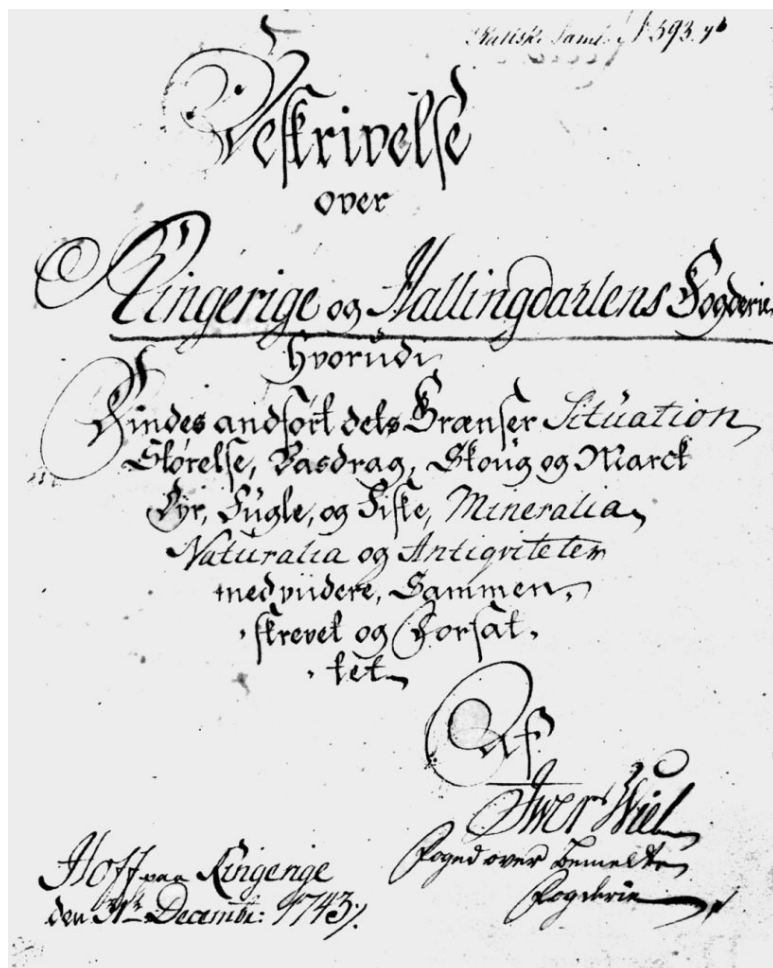 Kallske Saml. N 593. 4to
Beskrivelse
over
Ringerige og Hallingdahlens Fogderie
hvorudi
Findes andført dets Grænser Situation
Størelse, Vasdrag, Skoug og Marck
Dyr, Fugle, og Fiske, Mineralia
Naturalia og Antiqviteter
med viidere, Sammen-
skrevet og Forfat-
tet
Af
Iwer Wiel
Foged over bemelte
Fogderie
Hoff paa Ringerige
den 31te Decembr: 1743